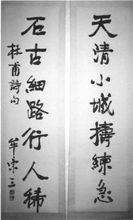 天清小城擣練急
石古細路行人稀
杜甫詩句
牟宗三